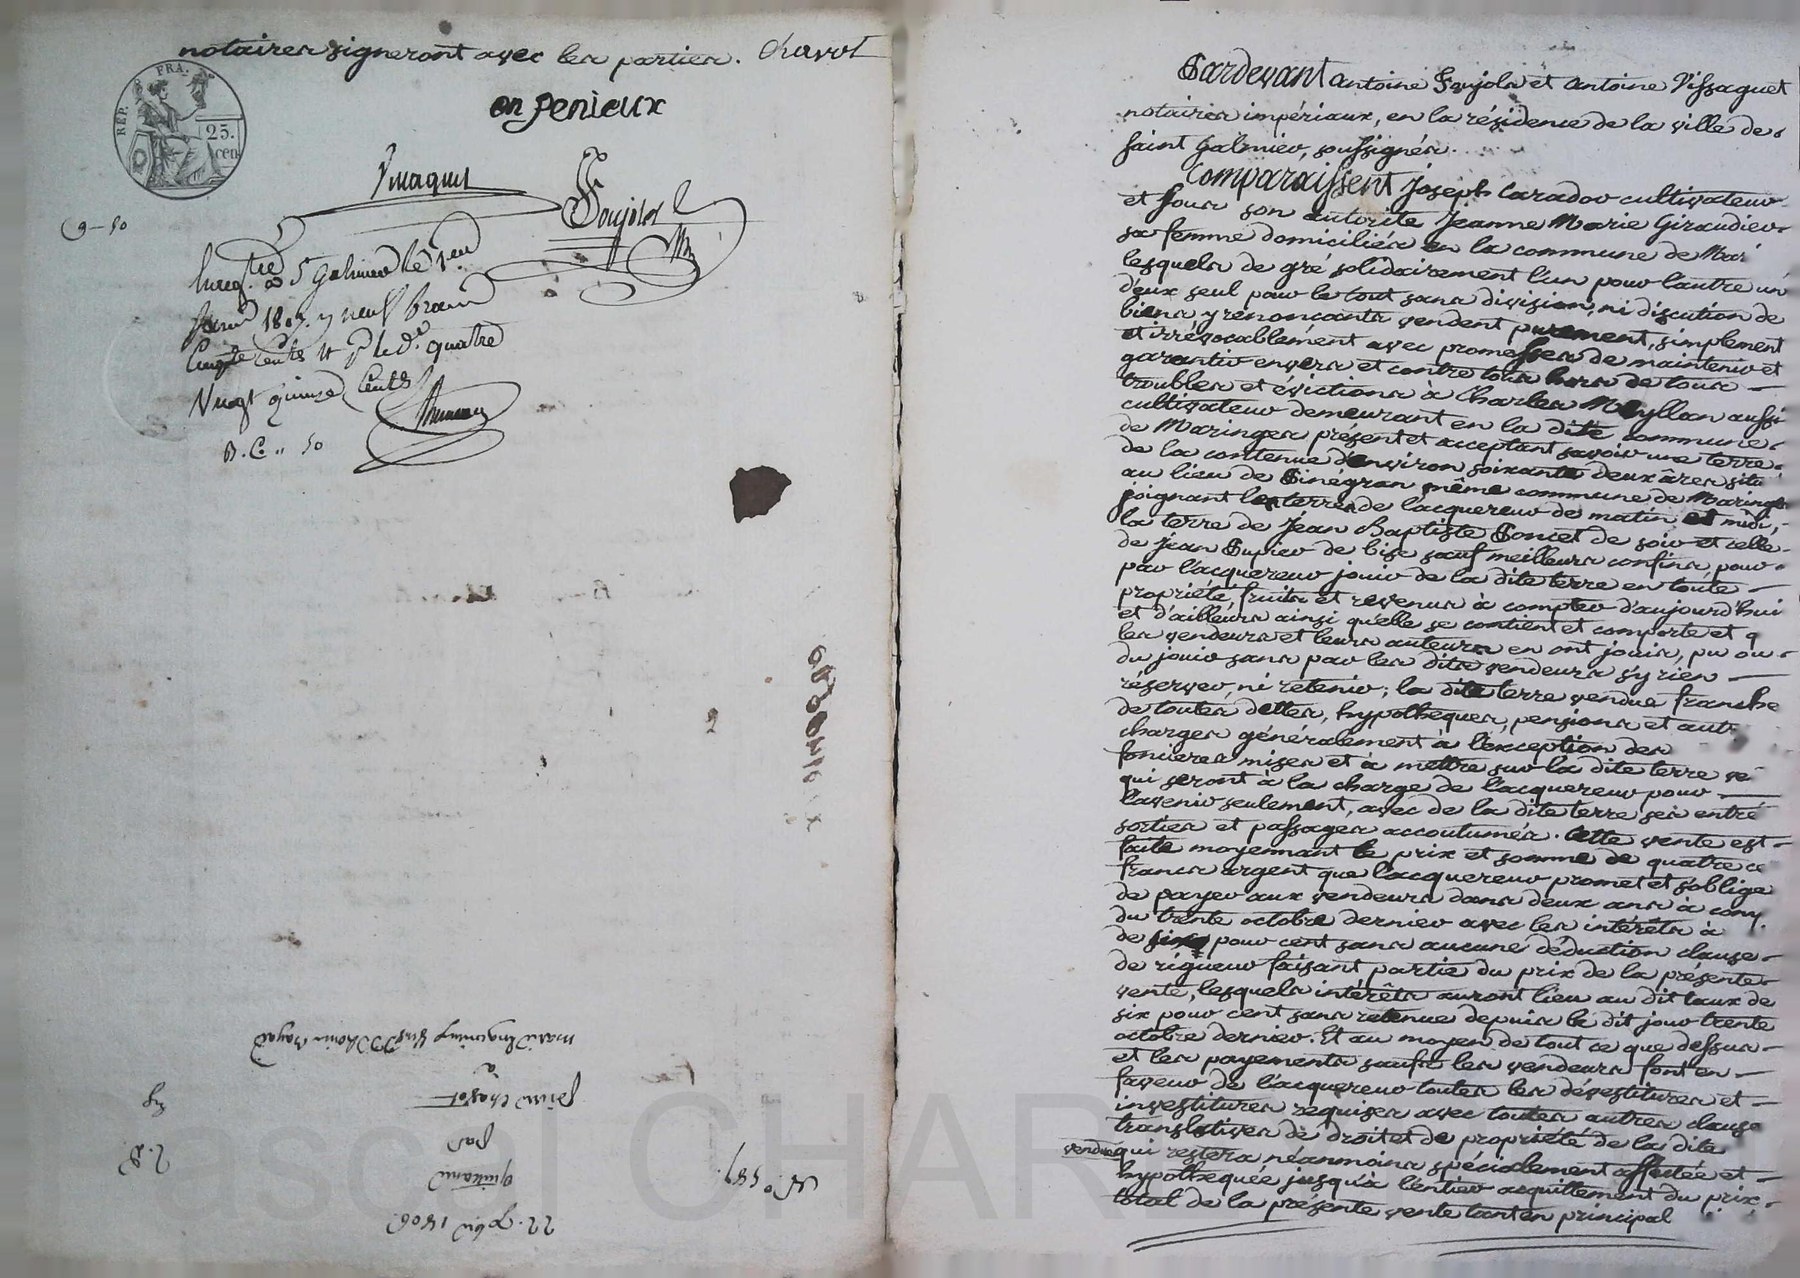 notaires signeront avec les parties. Chavot
on jenieux
RÉP. FRA.
25.
cen
Vissaguet
Poujolat
9 - 50
Enregtré à St Galmier le
1807. neuf francs
Cinqte Cents quatre
Vingt quinze Cents
B. C. " 50
Pardevant antoine Poujola et antoine Vissaguet
notaires impériaux, en la résidence de la ville de
saint Galmier, soussignés.
Comparaissent Joseph Caradov cultivateur
et sous son autorité Jeanne Marie Giraudier
sa femme domiciliés en la commune de Mar
lesquels de gré solidairement l'un pour l'autre un
d'eux seul pour le tout sans division, ni discution de
biens y renonçants vendent purement, simplement
et irrévocablement avec promesses de maintenir et
garantir envers et contre tous de tous
troubles et évictions à Charles Meyllan aussi
cultivateur demeurant en la dite commune
de Maringes présent et acceptant savoir une terre
de la contenue d'environ soixante deux âres situ
au lieu de Pinégran même commune de Maringes
joignant les terres de l'acquereur de matin et midi,
la terre de Jean Baptiste Poncet de soir et celle
de Jean Pupier de bize sauf meilleurs confins, pour
par l'acquereur jouir de la dite terre en toute
propriété, fruits et revenus à compter d'aujourd'hui
et d'ailleurs ainsi qu'elle se contient et comporte et q
les vendeurs et leurs auteurs en ont jouis, pu ou
du jouir sans par les dits vendeurs s'y rien
réserver, ni retenir; la dite terre vendue franche
de toutes dettes, hypothéques, pensions et aut
charges généralement à l'exception des
foncieres mises et à mettre sur la dite terre
qui seront à la charge de l'acquereur pour
l'avenir seulement, avec de la dite terre ses entré
sorties et passages accoutumés. Cette vente est
faite moyennant le prix et somme de quatre ce
francs argent que l'acquereur promet et s'oblige
de payer aux vendeurs dans deux ans à comp.
du trente octobre dernier avec les intérêts à
de pour cent sans aucune déduction clause
de rigueur faisant partie du prix de la présente
vente, lesquels intérêts auront lieu au dit taux de
six pour cent sans retenue depuis le dit jour trente
octobre dernier. Et au moyen de tout ce que dessus
et les payements saufs les vendeurs font en
faveur de l'acquereur toutes les dévestitures et
investitures requises avec toutes autres clause
translatives de droit et de propriété de la dite
vendue qui restera néanmoins spécialement affectée et
hypothequée jusqu'à l'entier acquittement du prix
total de la présente vente tant en principal
22. 1806
quittance
par
pierre chavot
à
N.o 587.
Pascal CHAR